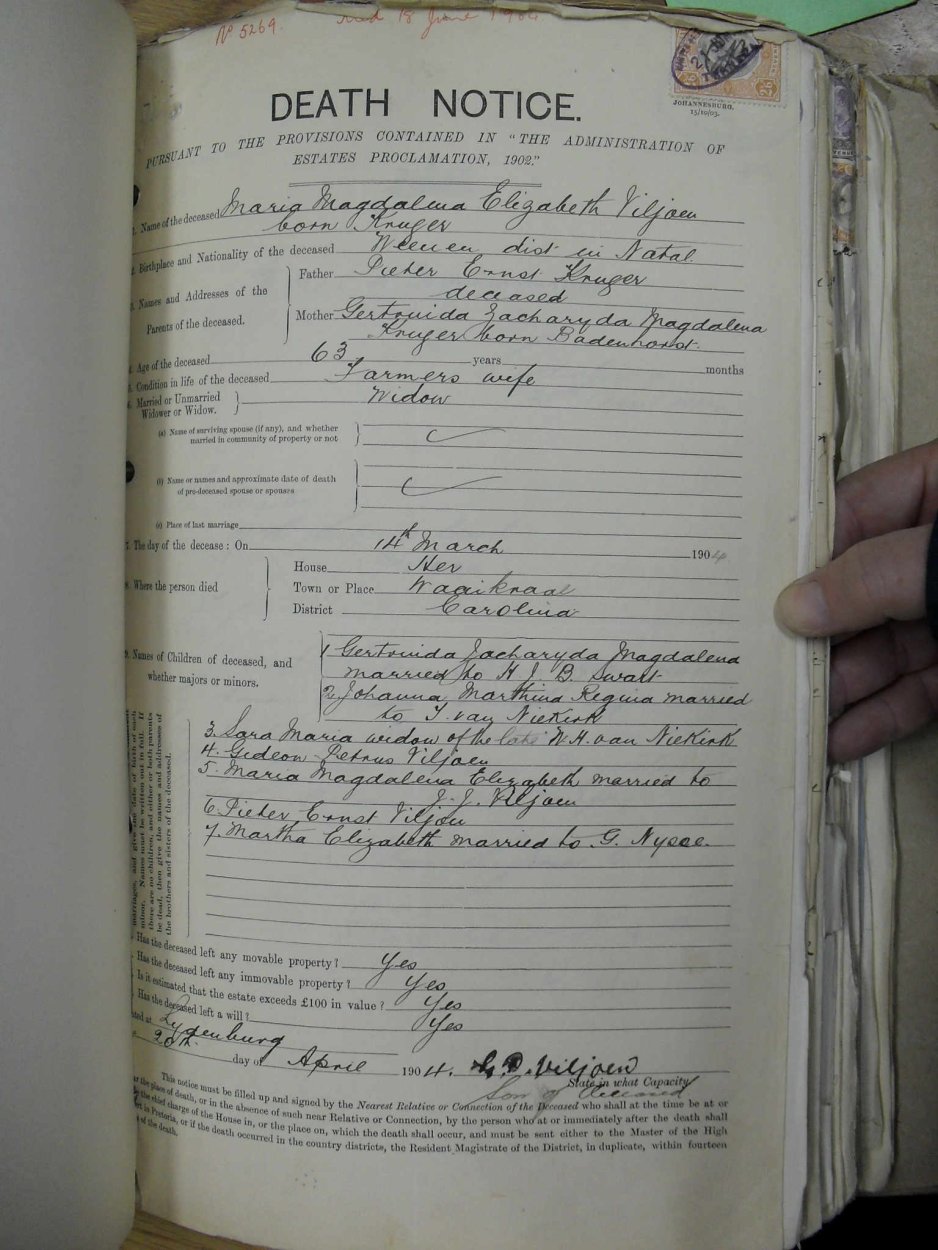 No 5269.
18 June 1904
JOHANNESBURG.
15/10/03.
DEATH NOTICE.
PURSUANT TO THE PROVISIONS CONTAINED IN "THE ADMINISTRATION OF
ESTATES PROCLAMATION, 1902."
1. Name of the deceased Maria Magdalena Elizabeth Viljoen
born Kruger
2. Birthplace and Nationality of the deceased Weenen dist in Natal.
3. Names and Addresses of the Parents of the deceased.
Father Pieter Ernst Kruger
deceased
Mother Gertruida Zacharyda Magdalena
Kruger born Badenhorst.
4. Age of the deceased 63 years months
5. Condition in life of the deceased Farmers wife
6. Married or Unmarried
Widower or Widow. Widow
(a) Name of surviving spouse (if any), and whether
married in community of property or not
(b) Name or names and approximate date of death
of pre-deceased spouse or spouses
(c) Place of last marriage
7. The day of the decease: On 14th March 1904
8. Where the person died
House Her
Town or Place Waaikraal
District Carolina
9. Names of Children of deceased, and
whether majors or minors.
1 Gertruida Zacharyda Magdalena
married to H J. B. Swart
2. Johanna Marthina Regina married
to T. van Niekirk
3. Sara Maria widow of the late W. H. van Niekirk
4. Gideon Petrus Viljoen
5. Maria Magdalena Elizabeth married to
J. J. Viljoen
6. Pieter Ernst Viljoen
7. Martha Elizabeth married to G. Nysce.
marriages, and give the date of birth of each
minor. Names must be written out in full. If
there are no children, and either or both parents
be dead, then give the names and addresses of
the brothers and sisters of the deceased.
Has the deceased left any movable property? Yes
Has the deceased left any immovable property? Yes
Is it estimated that the estate exceeds £100 in value? Yes
Has the deceased left a will? Yes
Dated at Lydenburg
20th day of April 1904. G. P. Viljoen
State in what Capacity
Son of deceased
This notice must be filled up and signed by the Nearest Relative or Connection of the Deceased who shall at the time be at or
the place of death, or in the absence of such near Relative or Connection, by the person who at or immediately after the death shall
the chief charge of the House in, or the place on, which the death shall occur, and must be sent either to the Master of the High
in Pretoria, or if the death occurred in the country districts, the Resident Magistrate of the District, in duplicate, within fourteen
of the death.